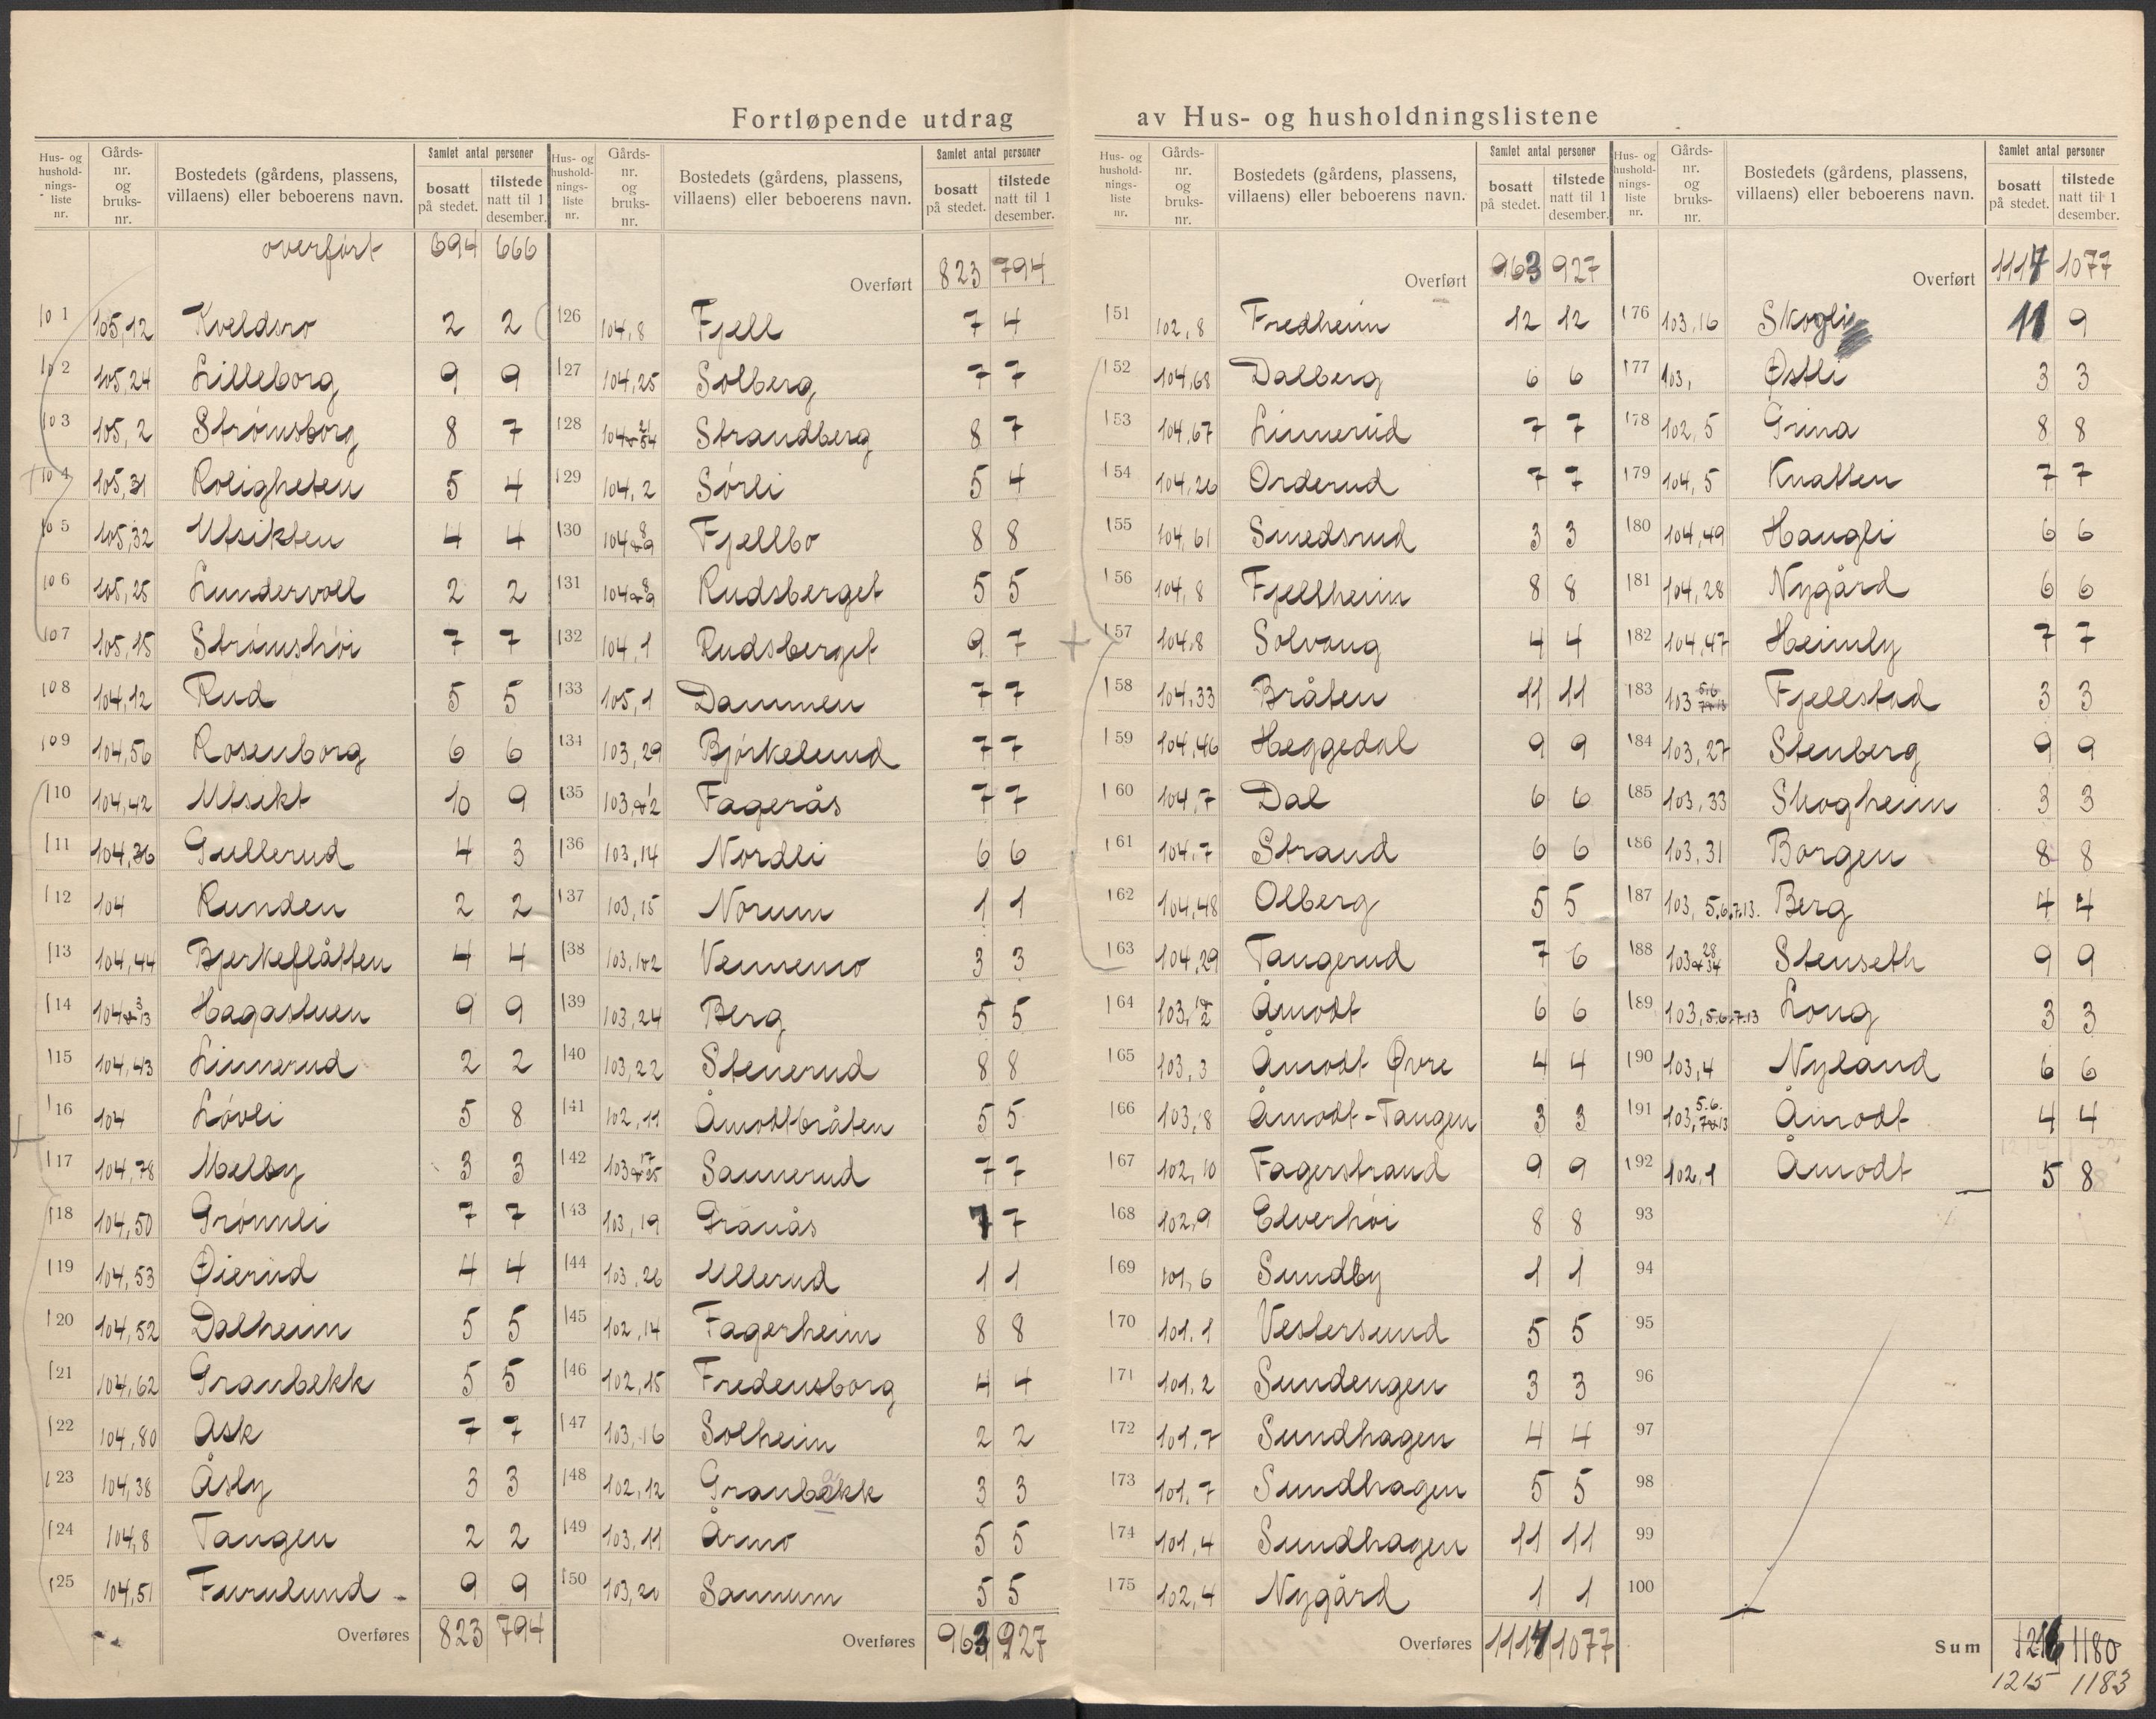 Fortløpende utdrag av Hus- og husholdningslistene
Hus- og hushold- nings- liste nr. | Gårds- nr. og bruks- nr. | Bostedets (gårdens, plassens, villaens) eller beboerens navn. | Samlet antal personer | bosatt på stedet. | tilstede natt til 1 desember.
overført 694 666
101 105,12 Kveldsro 2 2
102 105,24 Lilleborg 9 9
103 105,2 Strømsborg 8 7
104 105,31 Roligheten 5 4
105 105,32 Utsikten 4 4
106 105,25 Lundervoll 2 2
107 105,15 Strømshøi 7 7
108 104,12 Rud 5 5
109 104,56 Rosenborg 6 6
110 104,42 Utsikt 10 9
111 104,36 Gullerud 4 3
112 104 Runden 2 2
113 104,44 Bjerkeflåtten 4 4
114 104 3 & 13 Hagastuen 9 9
115 104,43 Linnerud 2 2
116 104 Løvli 5 8
117 104,78 Melby 3 3
118 104,50 Grønnli 7 7
119 104,53 Øierud 4 4
120 104,52 Dalheim 5 5
121 104,62 Granbekk 5 5
122 104,80 Ask 7 7
123 104,38 Åsly 3 3
124 104,8 Tangen 2 2
125 104,51 Furulund 9 9
Overføres 823 794
Hus- og hushold- nings- liste nr. | Gårds- nr. og bruks- nr. | Bostedets (gårdens, plassens, villaens) eller beboerens navn. | Samlet antal personer | bosatt på stedet. | tilstede natt til 1 desember.
Overført 823 794
126 104,8 Fjell 7 4
127 104,25 Solberg 7 7
128 104 21 & 54 Strandberg 8 7
129 104,2 Sørli 5 4
130 104 8 & 9 Fjellbo 8 8
131 104 8 & 9 Rudsberget 5 5
132 104,1 Rudsberget 9 7
133 105,1 Dammen 7 7
134 103,29 Bjørkelund 7 7
135 103,1 & 2 Fagerås 7 7
136 103,14 Nordli 6 6
137 103,15 Norum 1 1
138 103,1&2 Vennemo 3 3
139 103,24 Berg 5 5
140 103,22 Stenerud 8 8
141 102,11 Åmodtbråten 5 5
142 103 17 & 25 Sannerud 7 7
143 103,19 Granås 7 7
144 103,26 Ullerud 1 1
145 102,14 Fagerheim 8 8
146 102,15 Fredensborg 4 4
147 103,16 Solheim 2 2
148 102,12 Granbekk 3 3
149 103,11 Årmo 5 5
150 103,20 Sannum 5 5
Overføres 963 927
Hus- og hushold- nings- liste nr. | Gårds- nr. og bruks- nr. | Bostedets (gårdens, plassens, villaens) eller beboerens navn. | Samlet antal personer | bosatt på stedet. | tilstede natt til 1 desember.
Overført 963 927
151 102,8 Fredheim 12 12
152 104,68 Dalberg 6 6
153 104,67 Linnerud 7 7
154 104,26 Orderud 7 7
155 104,61 Smedsrud 3 3
156 104,8 Fjellheim 8 8
157 104,8 Solvang 4 4
158 104,33 Bråten 11 11
159 104,46 Heggedal 9 9
160 104,7 Dal 6 6
161 104,7 Strand 6 6
162 104,48 Olberg 5 5
163 104,29 Tangerud 7 6
164 103, 1& 2 Åmodt 6 6
165 103,3 Åmodt Øvre 4 4
166 103,8 Åmodt-Tangen 3 3
167 102,10 Fagerstrand 9 9
168 102,9 Elverhøi 8 8
169 101,6 Sundby 1 1
170 101,1 Vestersund 5 5
171 101,2 Sundengen 3 3
172 101,7 Sundhagen 4 4
173 101,7 Sundhagen 5 5
174 101,4 Sundhagen 11 11
175 102,4 Nygård 1 1
Overføres 1117 1077
Hus- og hushold- nings- liste nr. | Gårds- nr. og bruks- nr. | Bostedets (gårdens, plassens, villaens) eller beboerens navn. | Samlet antal personer | bosatt på stedet. | tilstede natt til 1 desember.
Overført 1117 1077
176 103,16 Skogli 11 9
177 103, Østli 3 3
178 102,5 Grina 8 8
179 104,5 Knatten 7 7
180 104,49 Haugli 6 6
181 104,28 Nygård 6 6
182 104,47 Heimly 7 7
183 103 5,6 7&13 Fjellstad 3 3
184 103,27 Stenberg 9 9
185 103,33 Skogheim 3 3
186 103,31 Borgen 8 8
187 103, 5,6,7.13. Berg 4 4
188 103 28 & 34 Stenseth 9 9
189 103, 5.6.7.13 Long 3 3
190 103,4 Nyland 6 6
191 103, 5.6. 7&13 Åmodt 4 4
192 102,1 Åmodt 5 8
93
94
95
96
97
98
99
100
Sum 1216 1180
1215 1183